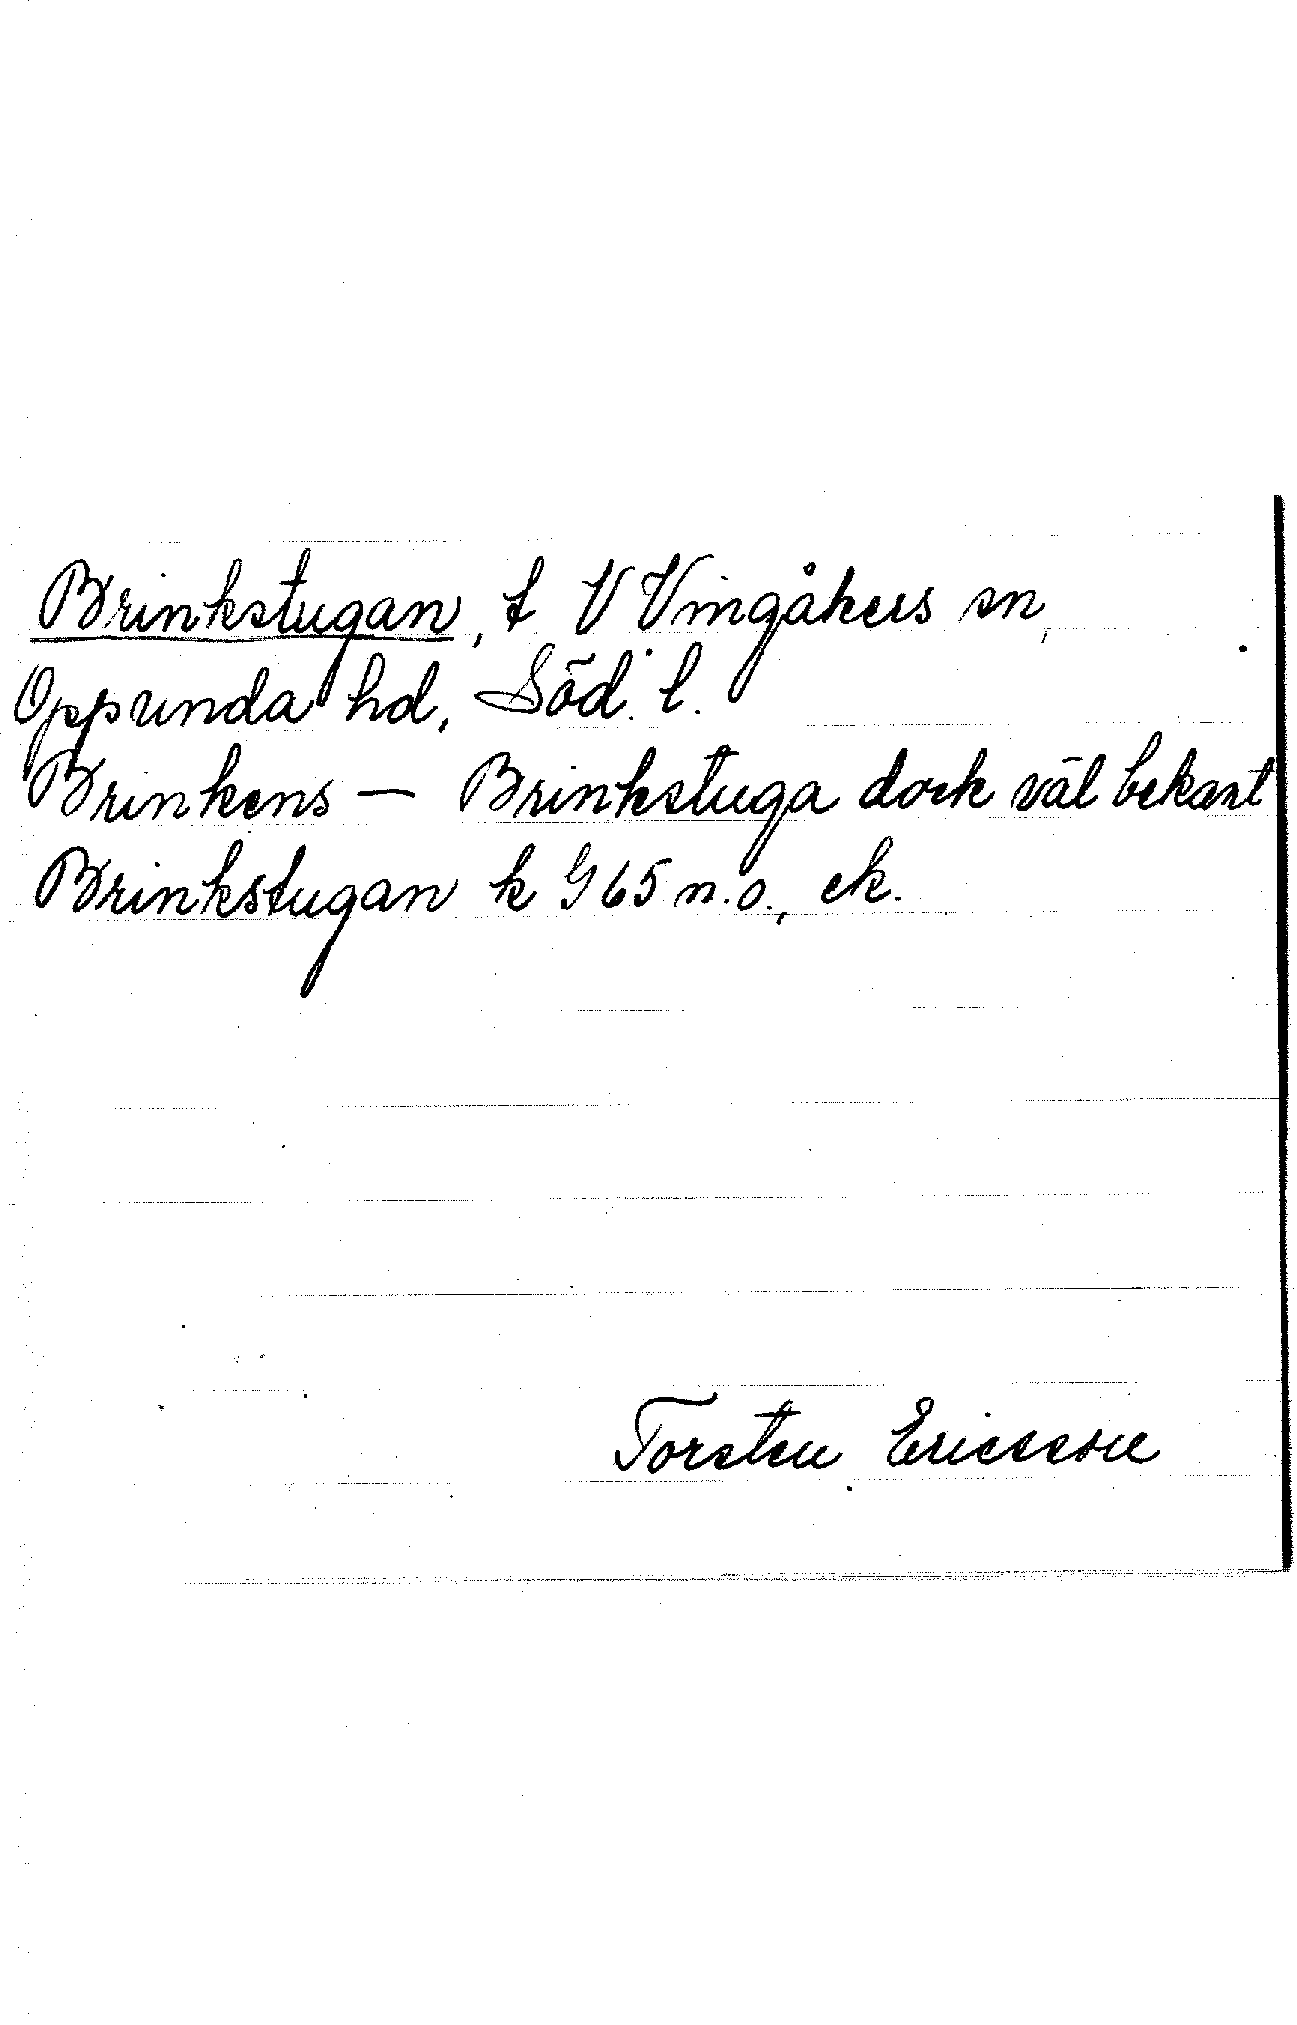 Brinkstugan, t V Vingåkers sn,
Oppunda hd, Söd. l.
Brinkens — Brinkstuga dock väl bekant
Brinkstugan k G 65 n.o., ek.
Torsten Ericsson